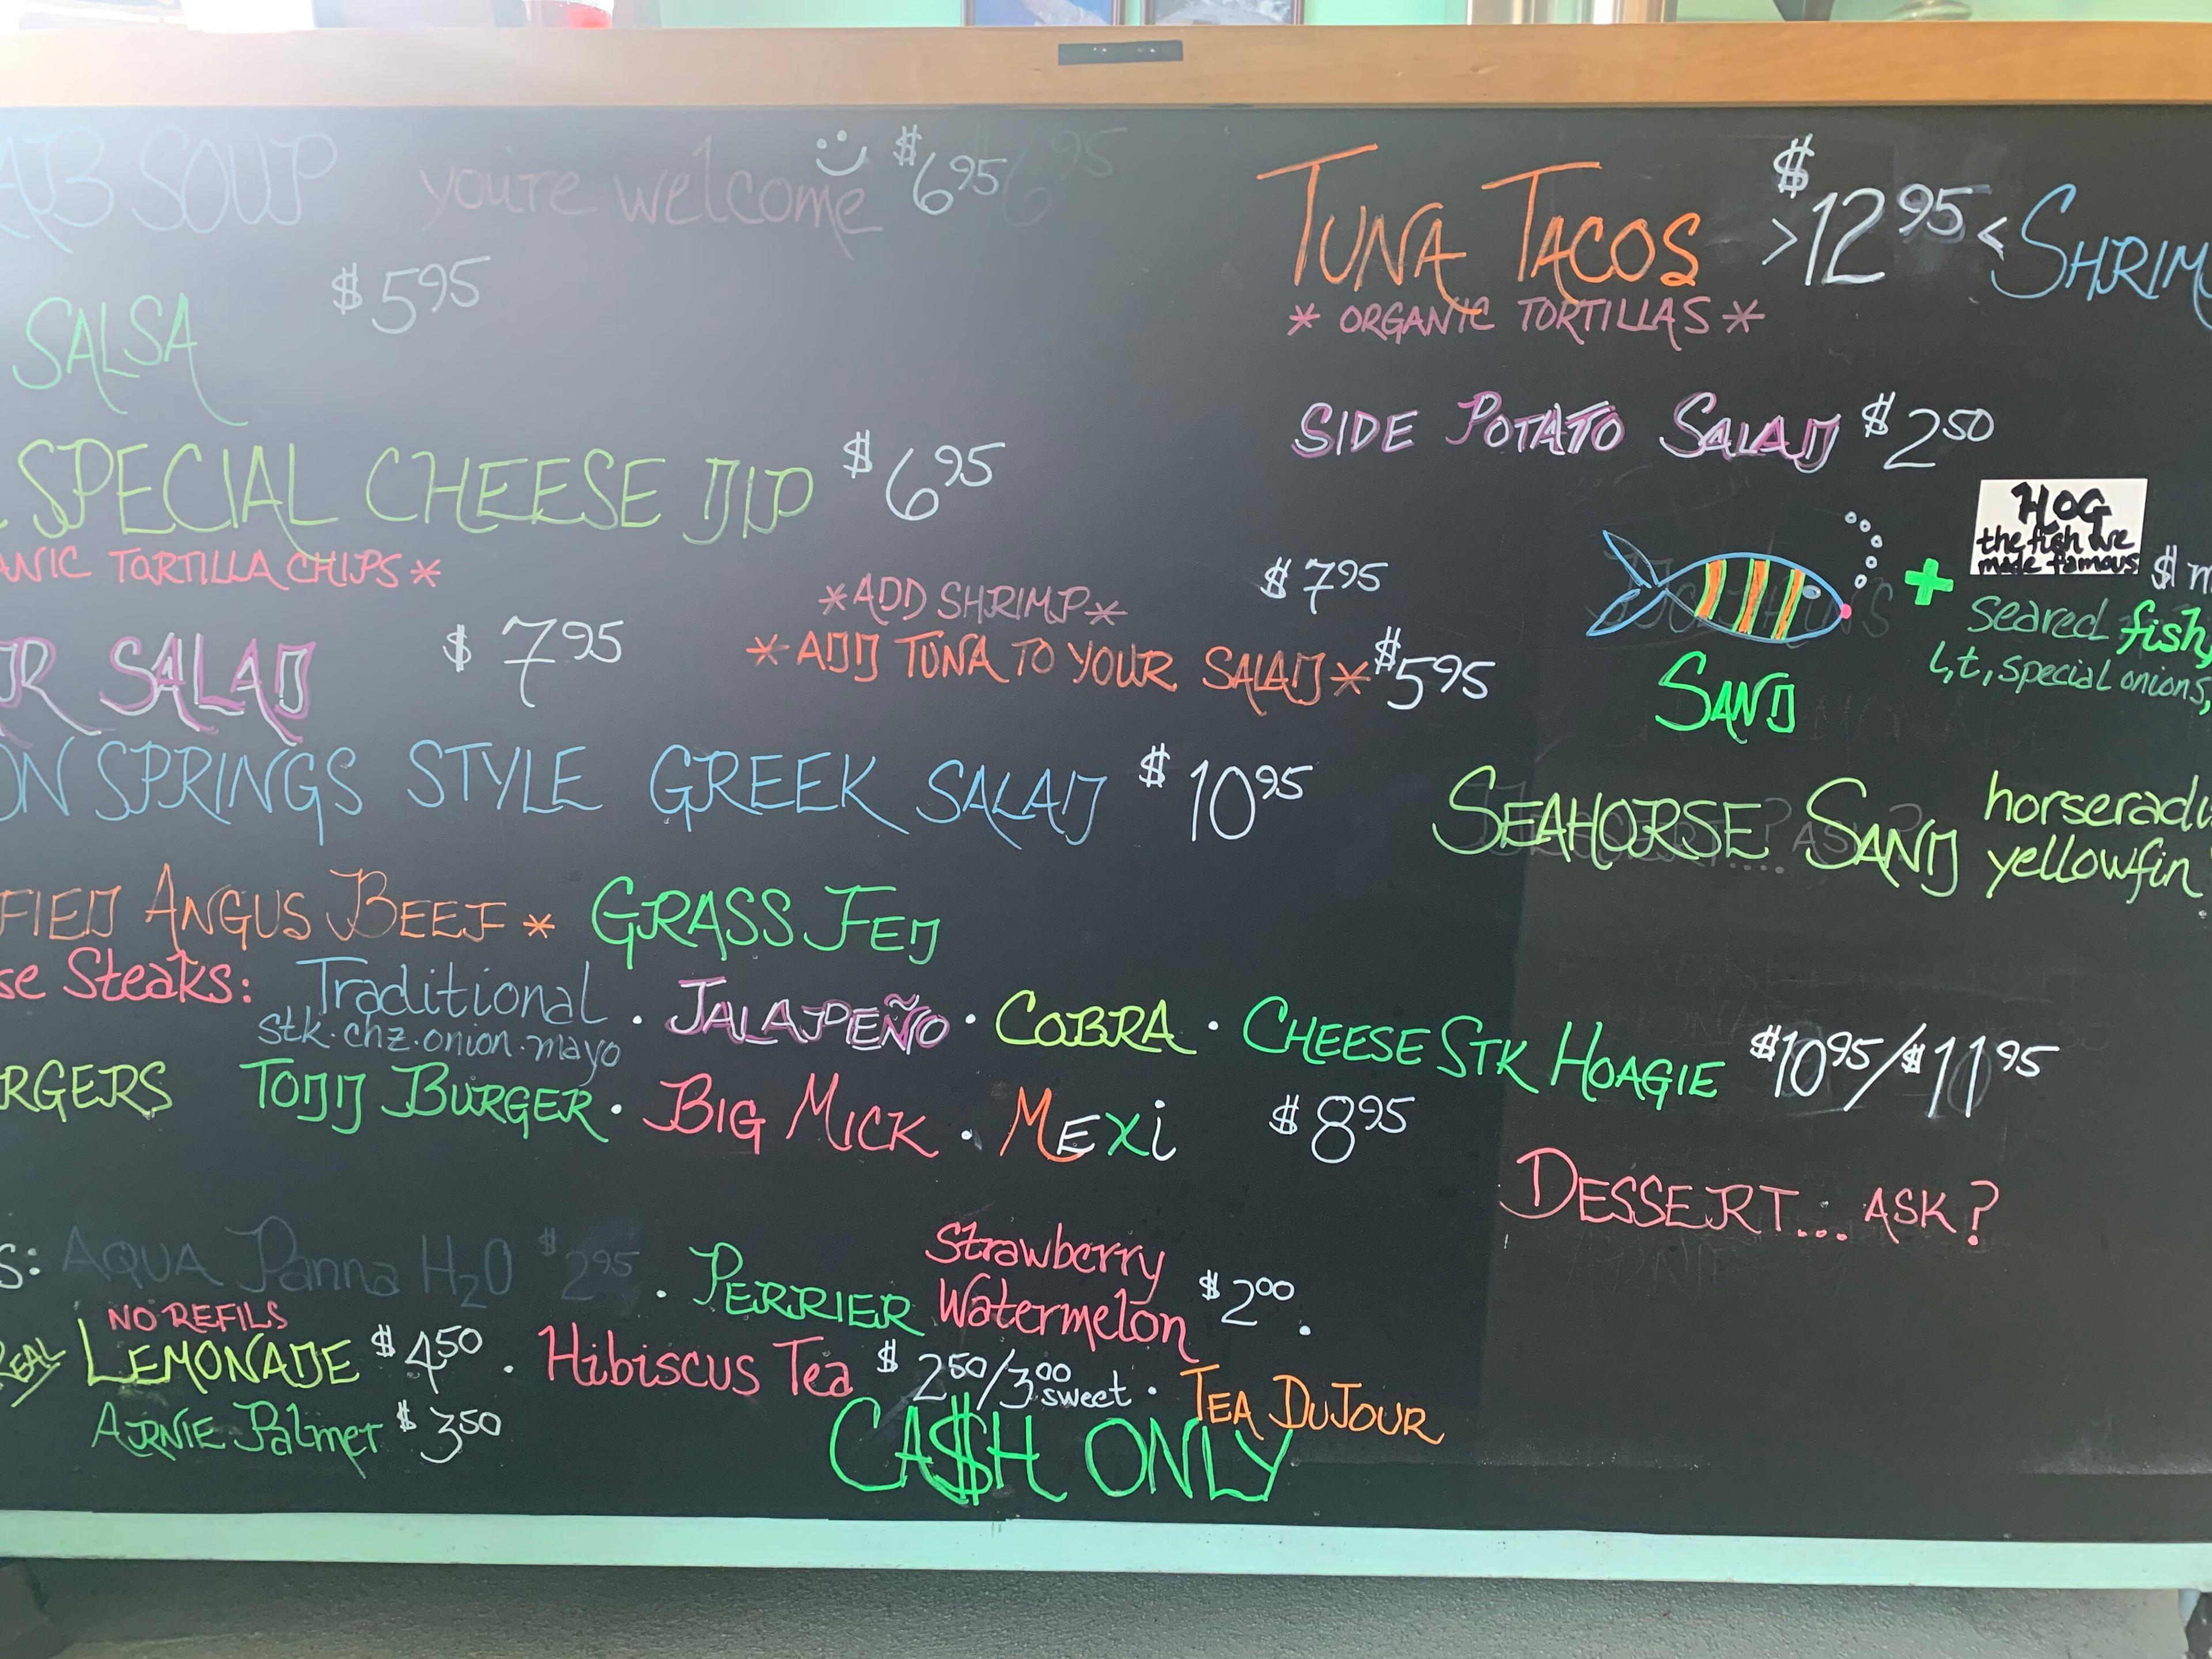 AB SOUP you're welcome $6.95
SALSA $5.95
SPECIAL CHEESE DIP $6.95
ANIC TORTILLA CHIPS *
*ADD SHRIMP* $7.95
R SALAD $7.95 *ADD TUNA TO YOUR SALAD* $5.95
ON SPRINGS STYLE GREEK SALAD $10.95
FIED ANGUS BEEF * GRASS FED
se Steaks: Traditional · JALAPEÑO · COBRA · CHEESE STK HOAGIE $10.95/$11.95
stk.chz.onion.mayo
RGERS TODD BURGER · BIG MICK · MEXi $8.95
S: AQUA Panna H2O $2.95 · PERRIER Strawberry Watermelon $2.00 .
NO REFILS
REAL LEMONADE $4.50 · Hibiscus Tea $2.50/3.00 sweet · TEA DUJOUR
ARNIE Palmer $3.50
CA$H ONLY
TUNA TACOS >$12.95< SHRIM
* ORGANIC TORTILLAS *
SIDE POTATO SALAD $2.50
HOG
the fish we
made famous
+ $m
SAND
seared fish,
l, t, special onions,
SEAHORSE SAND horseradi
yellowfin
DESSERT... ASK?